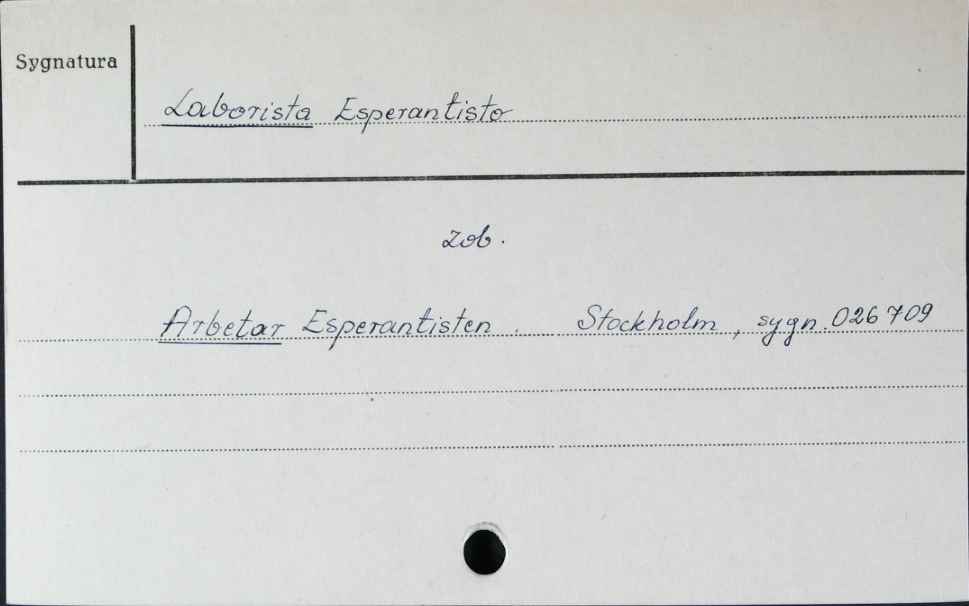 Sygnatura
Laborista Esperantisto
zob.
Arbetar Esperantisten. Stockholm, sygn. 026709